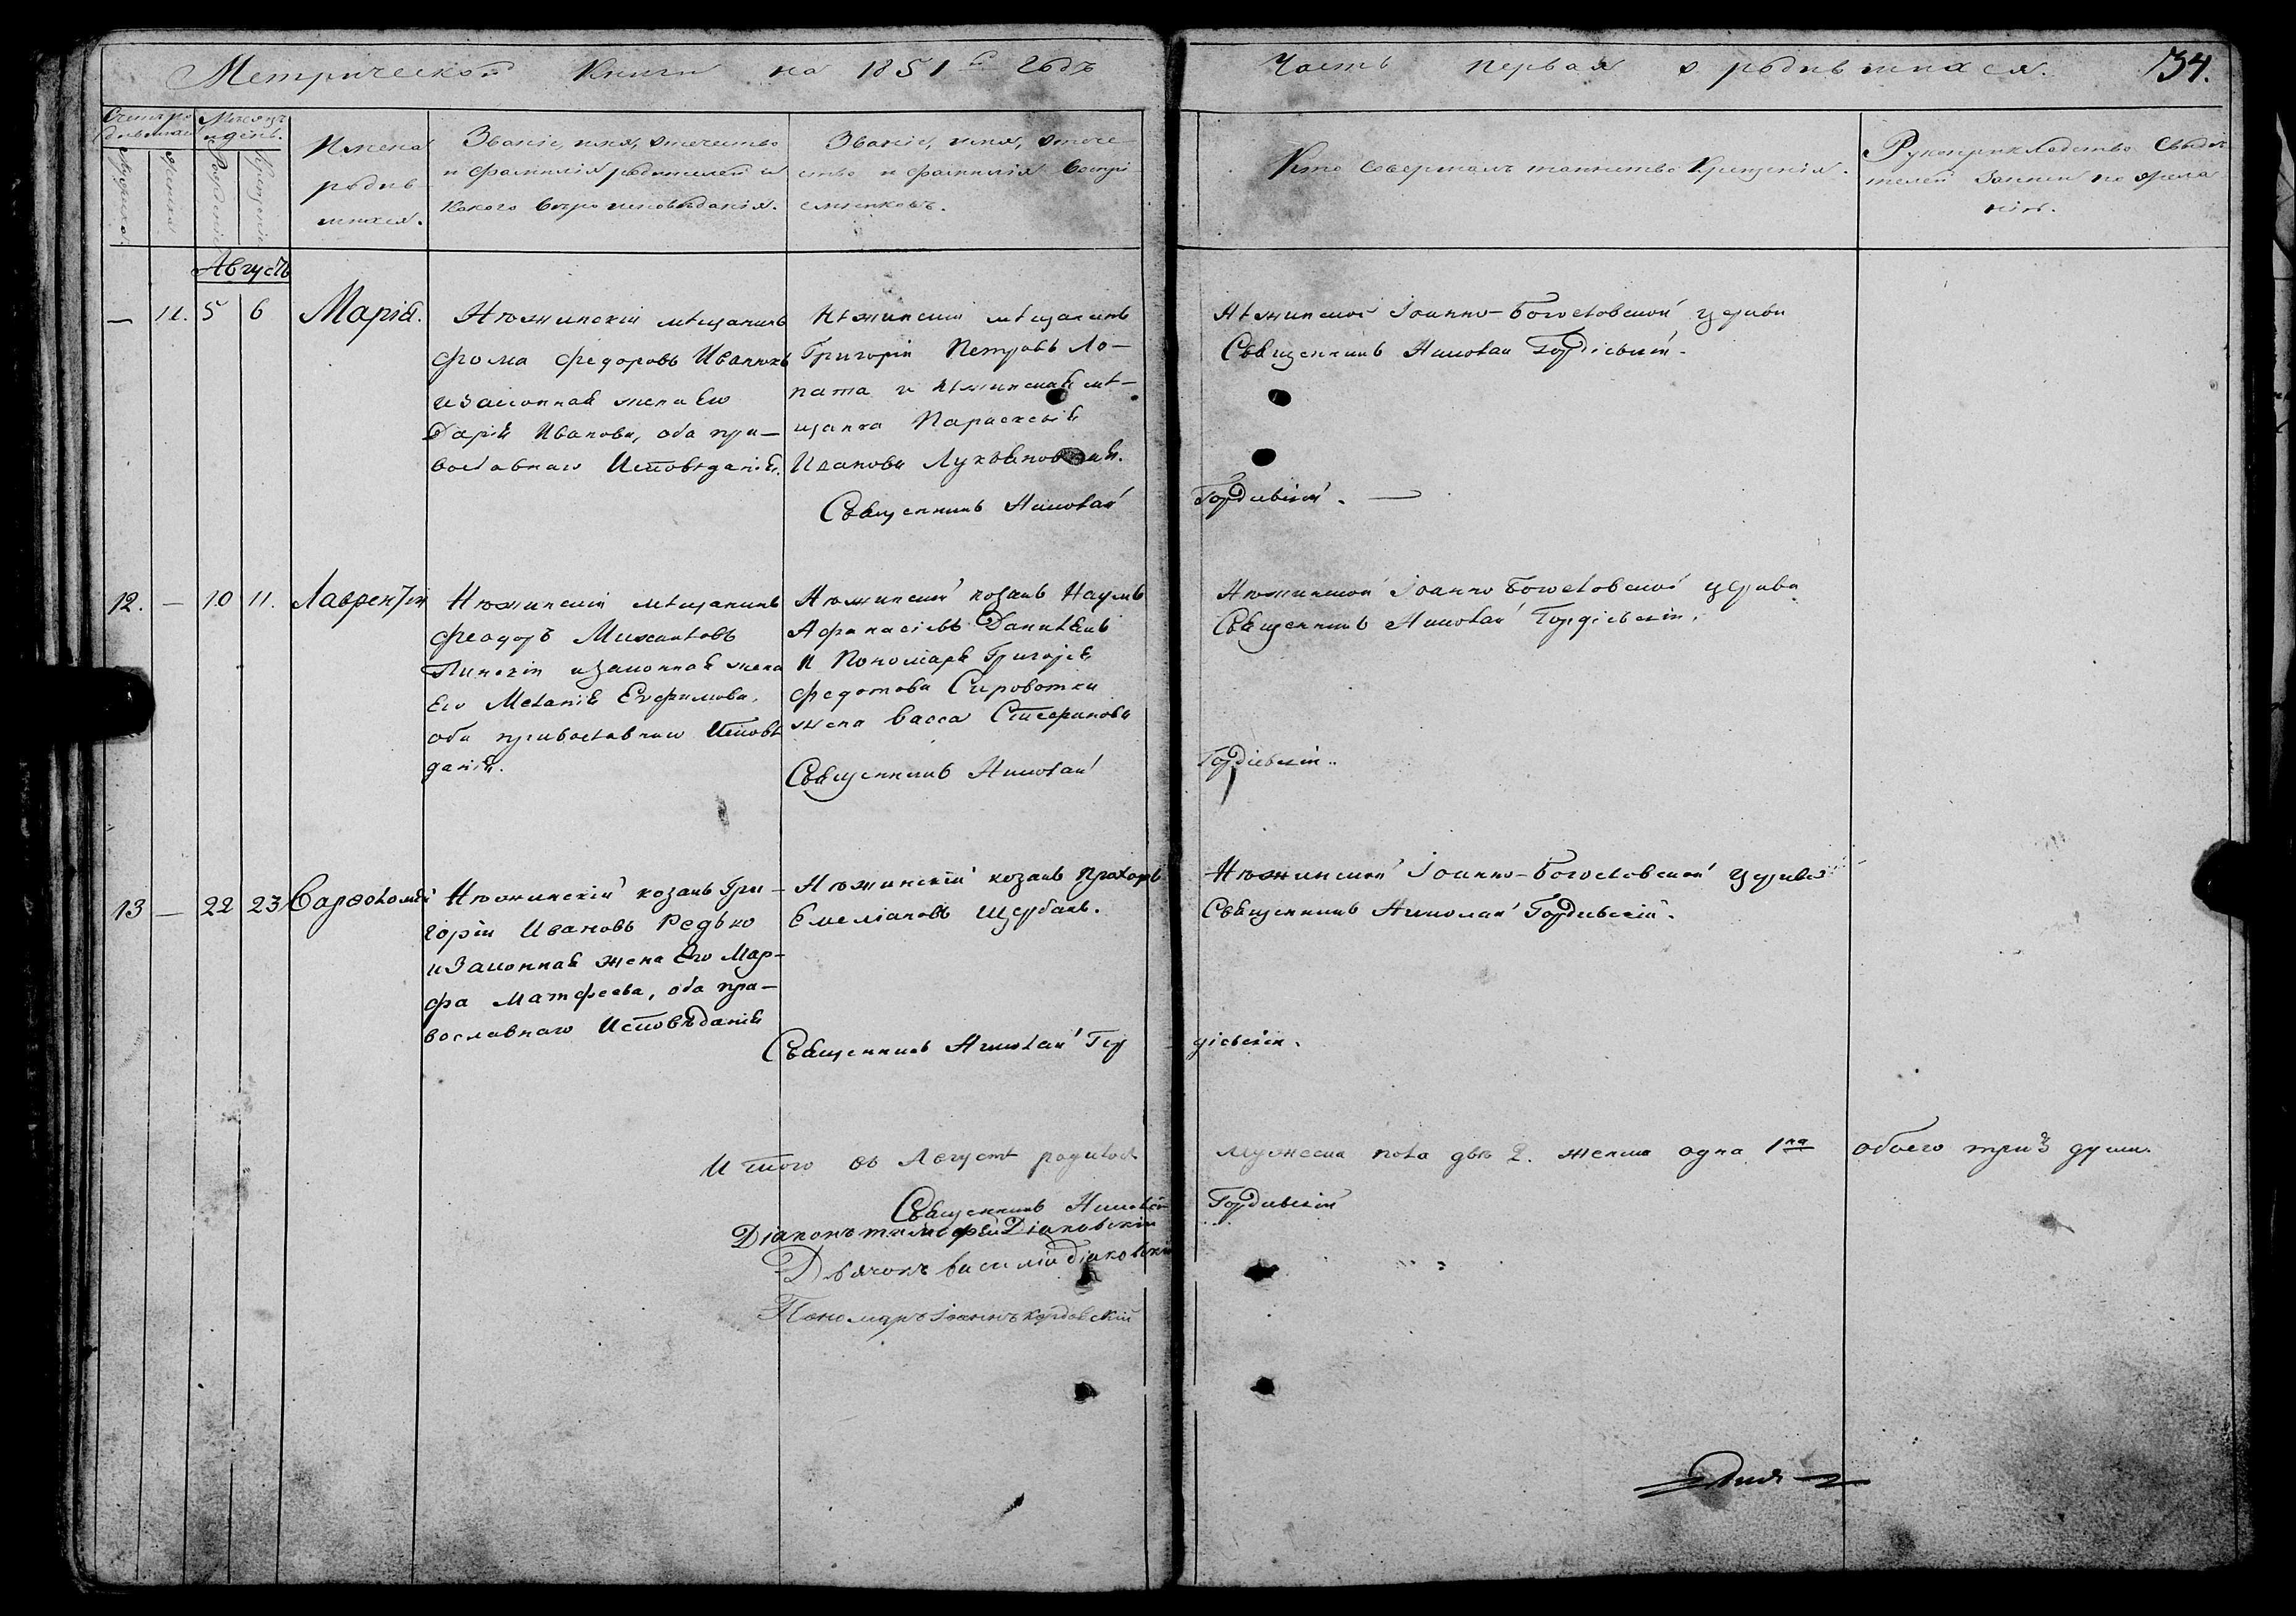 Метрической Книги на 1851й Годъ
Часть первая о родившихся.
Счетъ ро
дившихся
Мѣсяцъ
и день.
Мужеска
Женска
Рожденія
Крещенія
Имена
родив-
шихся.
Званіе, имя, отчество
и фамилія родителей и
какого вѣроисповѣданія.
Званіе, имя, отече-
ство и фамилія воспрі
емниковъ.
Кто совершалъ таинство Крещенія.
Рукоприкладство свидѣ
телей записи по жела
нію.
Августъ
— 11. 5 6 Марія.
Нѣжинскій мѣщанинъ
Фома Федоровъ
и законная жена Его
Дарія Иванова, оба пра-
вославнаго Исповѣданія.
Нѣжинскій мѣщанинъ
Григорій Петровъ Ло-
пата и нѣжинская мѣ-
щанка Параскевія
Иванова
Священникъ Николай
Нѣжинской Іоанно-Богословской церкви
Священникъ Николай Гордіевскій.
Гордіевскій. —
12. — 10 11. Лаврентій
Нѣжинскій мѣщанинъ
Феодоръ Михаиловъ
и законная жена
Его Меланія Евфимова,
оба православнаго Исповѣ
данія.
Нѣжинскій козакъ Наумъ
Афанасіевъ
и Пономаря Григорія
Федотова Сыроватки
жена Васса Стефанова
Священникъ Николай
Нѣжинской Іоанно Богословской церкви
Священникъ Николай Гордіевскій.
Гордіевскій..
13 — 22 23 Варѳоломѣй
Нѣжинскій козакъ Гри-
горій Ивановъ Редько
и законная жена Его Мар-
фа Матфеева, оба пра-
вославнаго Исповѣданія
Нѣжинскій козакъ Прохоръ
Емеліановъ Щербакъ.
Священникъ Николай Гор
Нѣжинской Іоанно-Богословской церкви
Священникъ Николай Гордіевскій.
діевскій.
Итого въ Августѣ родилось мужеска пола двѣ 2. женска одна 1на обоего три 3 души.
Священникъ Николай Гордіевскій
Діаконъ тимофей Діаковскій
Дьячокъ василій Діаковскій
Пономаръ Іоаннъ